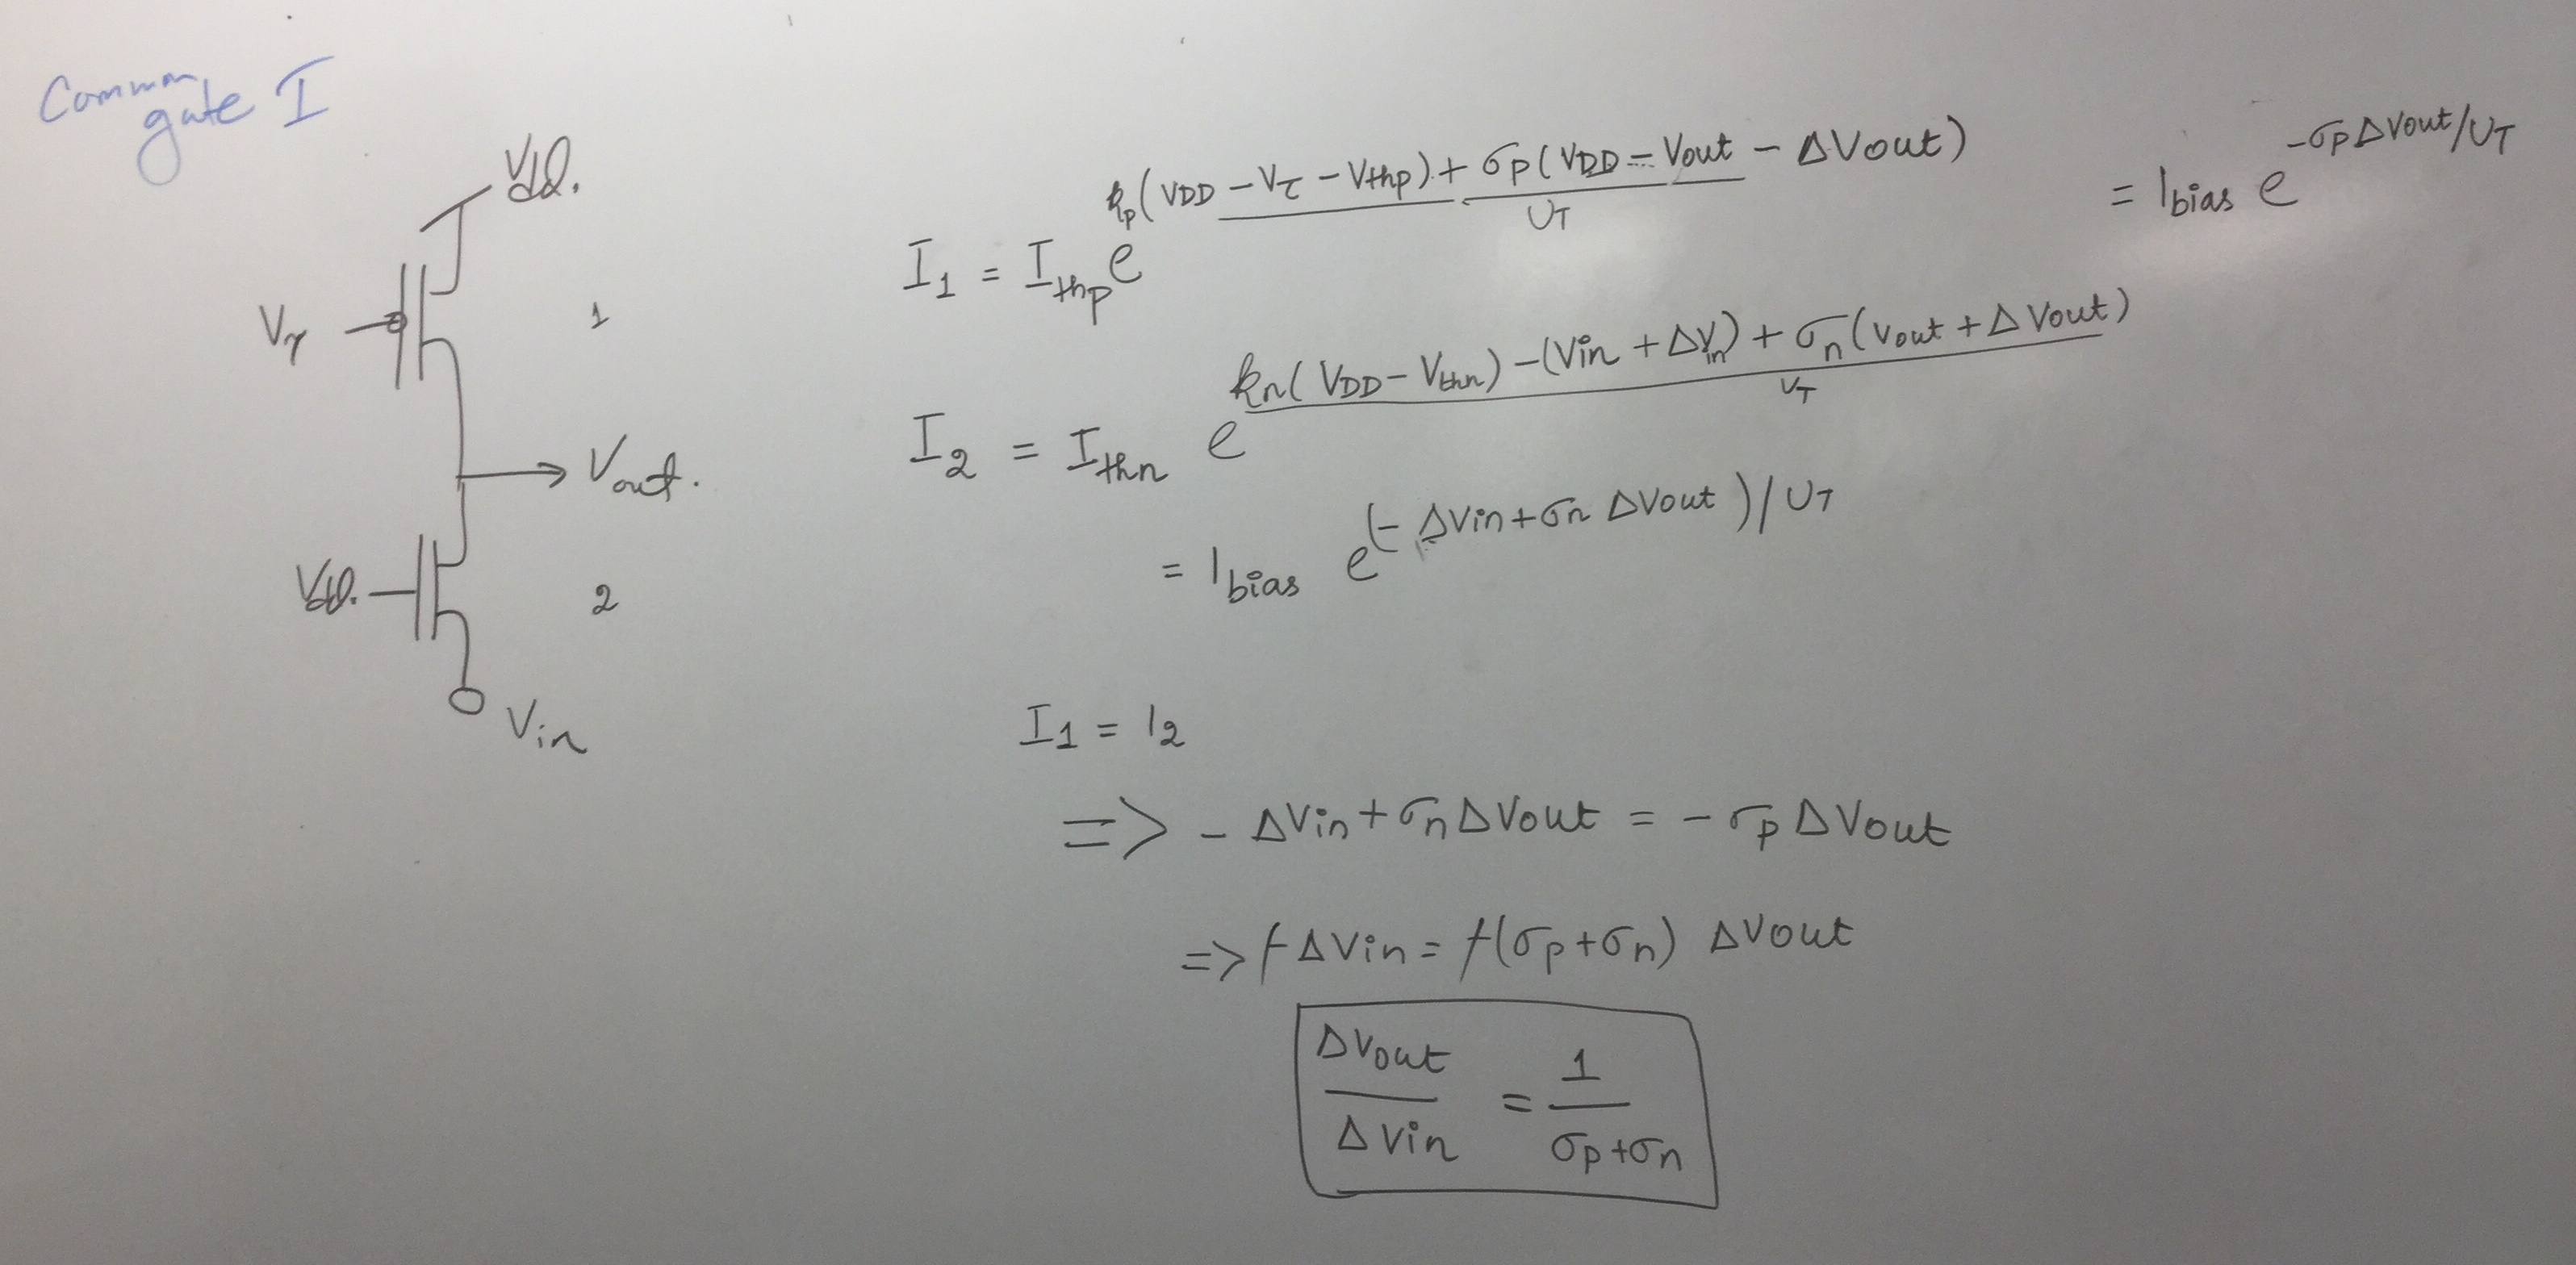 Common
gate I
Vdd.
Vτ
1
Vout.
Vdd.
2
Vin
I₁ = I_thp e^((kp(VDD − Vτ − Vthp) + σp(VDD − Vout − ΔVout))/UT) = Ibias e^(−σpΔVout/UT)
I₂ = I_thn e^((kn(VDD − Vthn) − (Vin + ΔVin) + σn(Vout + ΔVout))/UT)
= Ibias e^((− ΔVin + σn ΔVout)/UT)
I₁ = I₂
=> − ΔVin + σnΔVout = − σpΔVout
=> −ΔVin = −(σp + σn) ΔVout
ΔVout / ΔVin = 1 / (σp + σn)